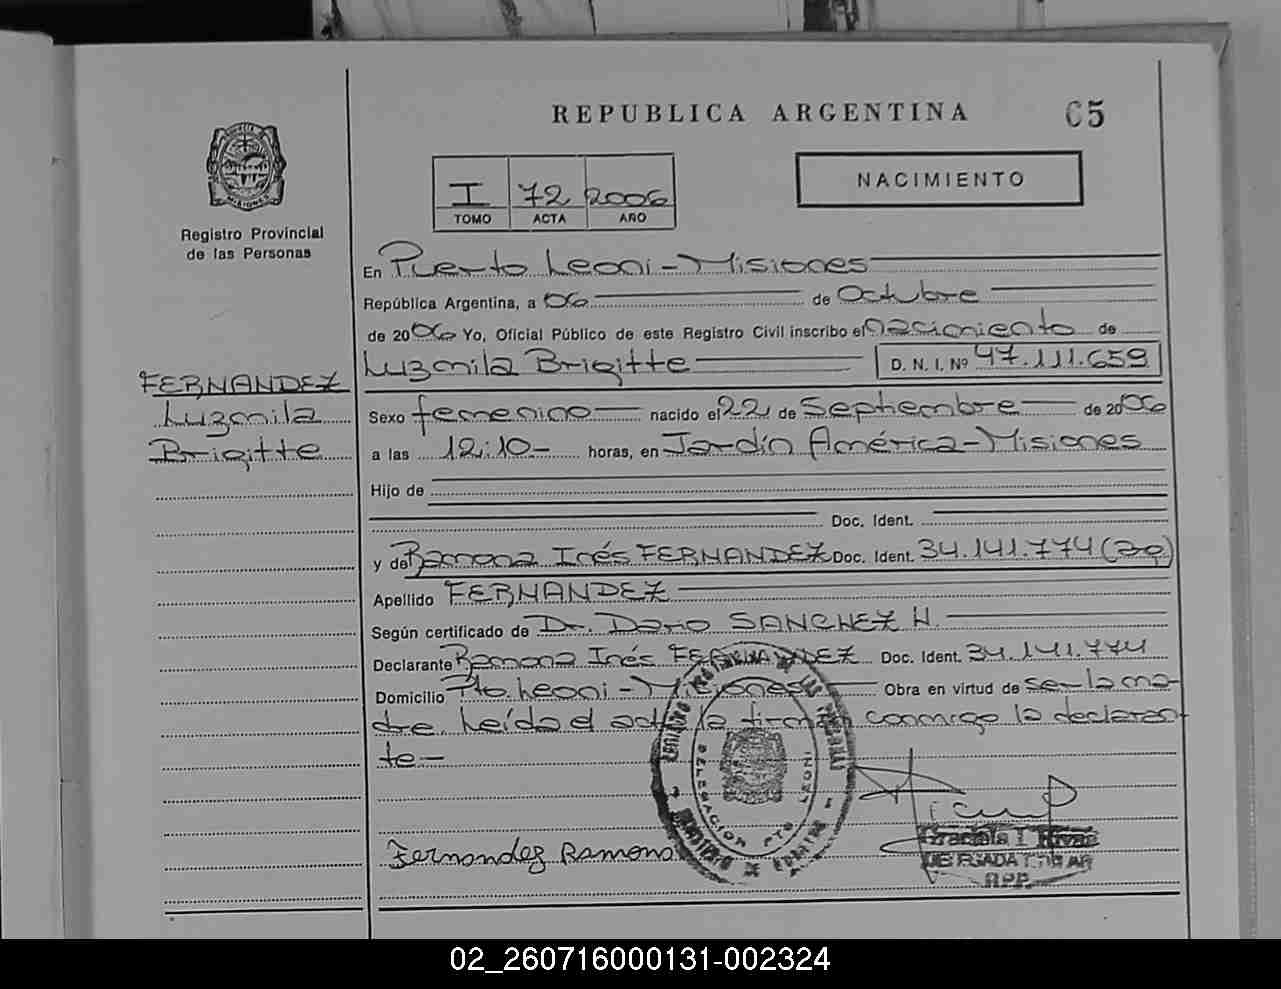 REPUBLICA ARGENTINA
65
Registro Provincial
de las Personas
I 72 2006
TOMO ACTA AÑO
NACIMIENTO
En Puerto Leoni - Misiones
República Argentina, a 06 de Octubre
de 2006 Yo, Oficial Público de este Registro Civil inscribo el nacimiento de
Luzmila Brigitte D. N. I. Nº 47.111.659
FERNANDEZ
Luzmila
Brigitte
Sexo femenino nacido el 22 de Septiembre de 2006
a las 12:10- horas, en Jardín América-Misiones
Hijo de
Doc. Ident.
y de Ramona Inés FERNANDEZ Doc. Ident. 34.141.774 (ag)
Apellido FERNANDEZ
Según certificado de Dr. Dario SANCHEZ H.
Declarante Ramona Inés FERNANDEZ Doc. Ident. 34.141.774
Domicilio Pto. Leoni - Misiones Obra en virtud de ser la ma-
dre. Leída el acta la firman conmigo la declaran-
te-
DELEGACION PTO LEONI
Fernandez Ramona
Graciela I.
DELEGADA TITULAR
RPP
02_260716000131-002324